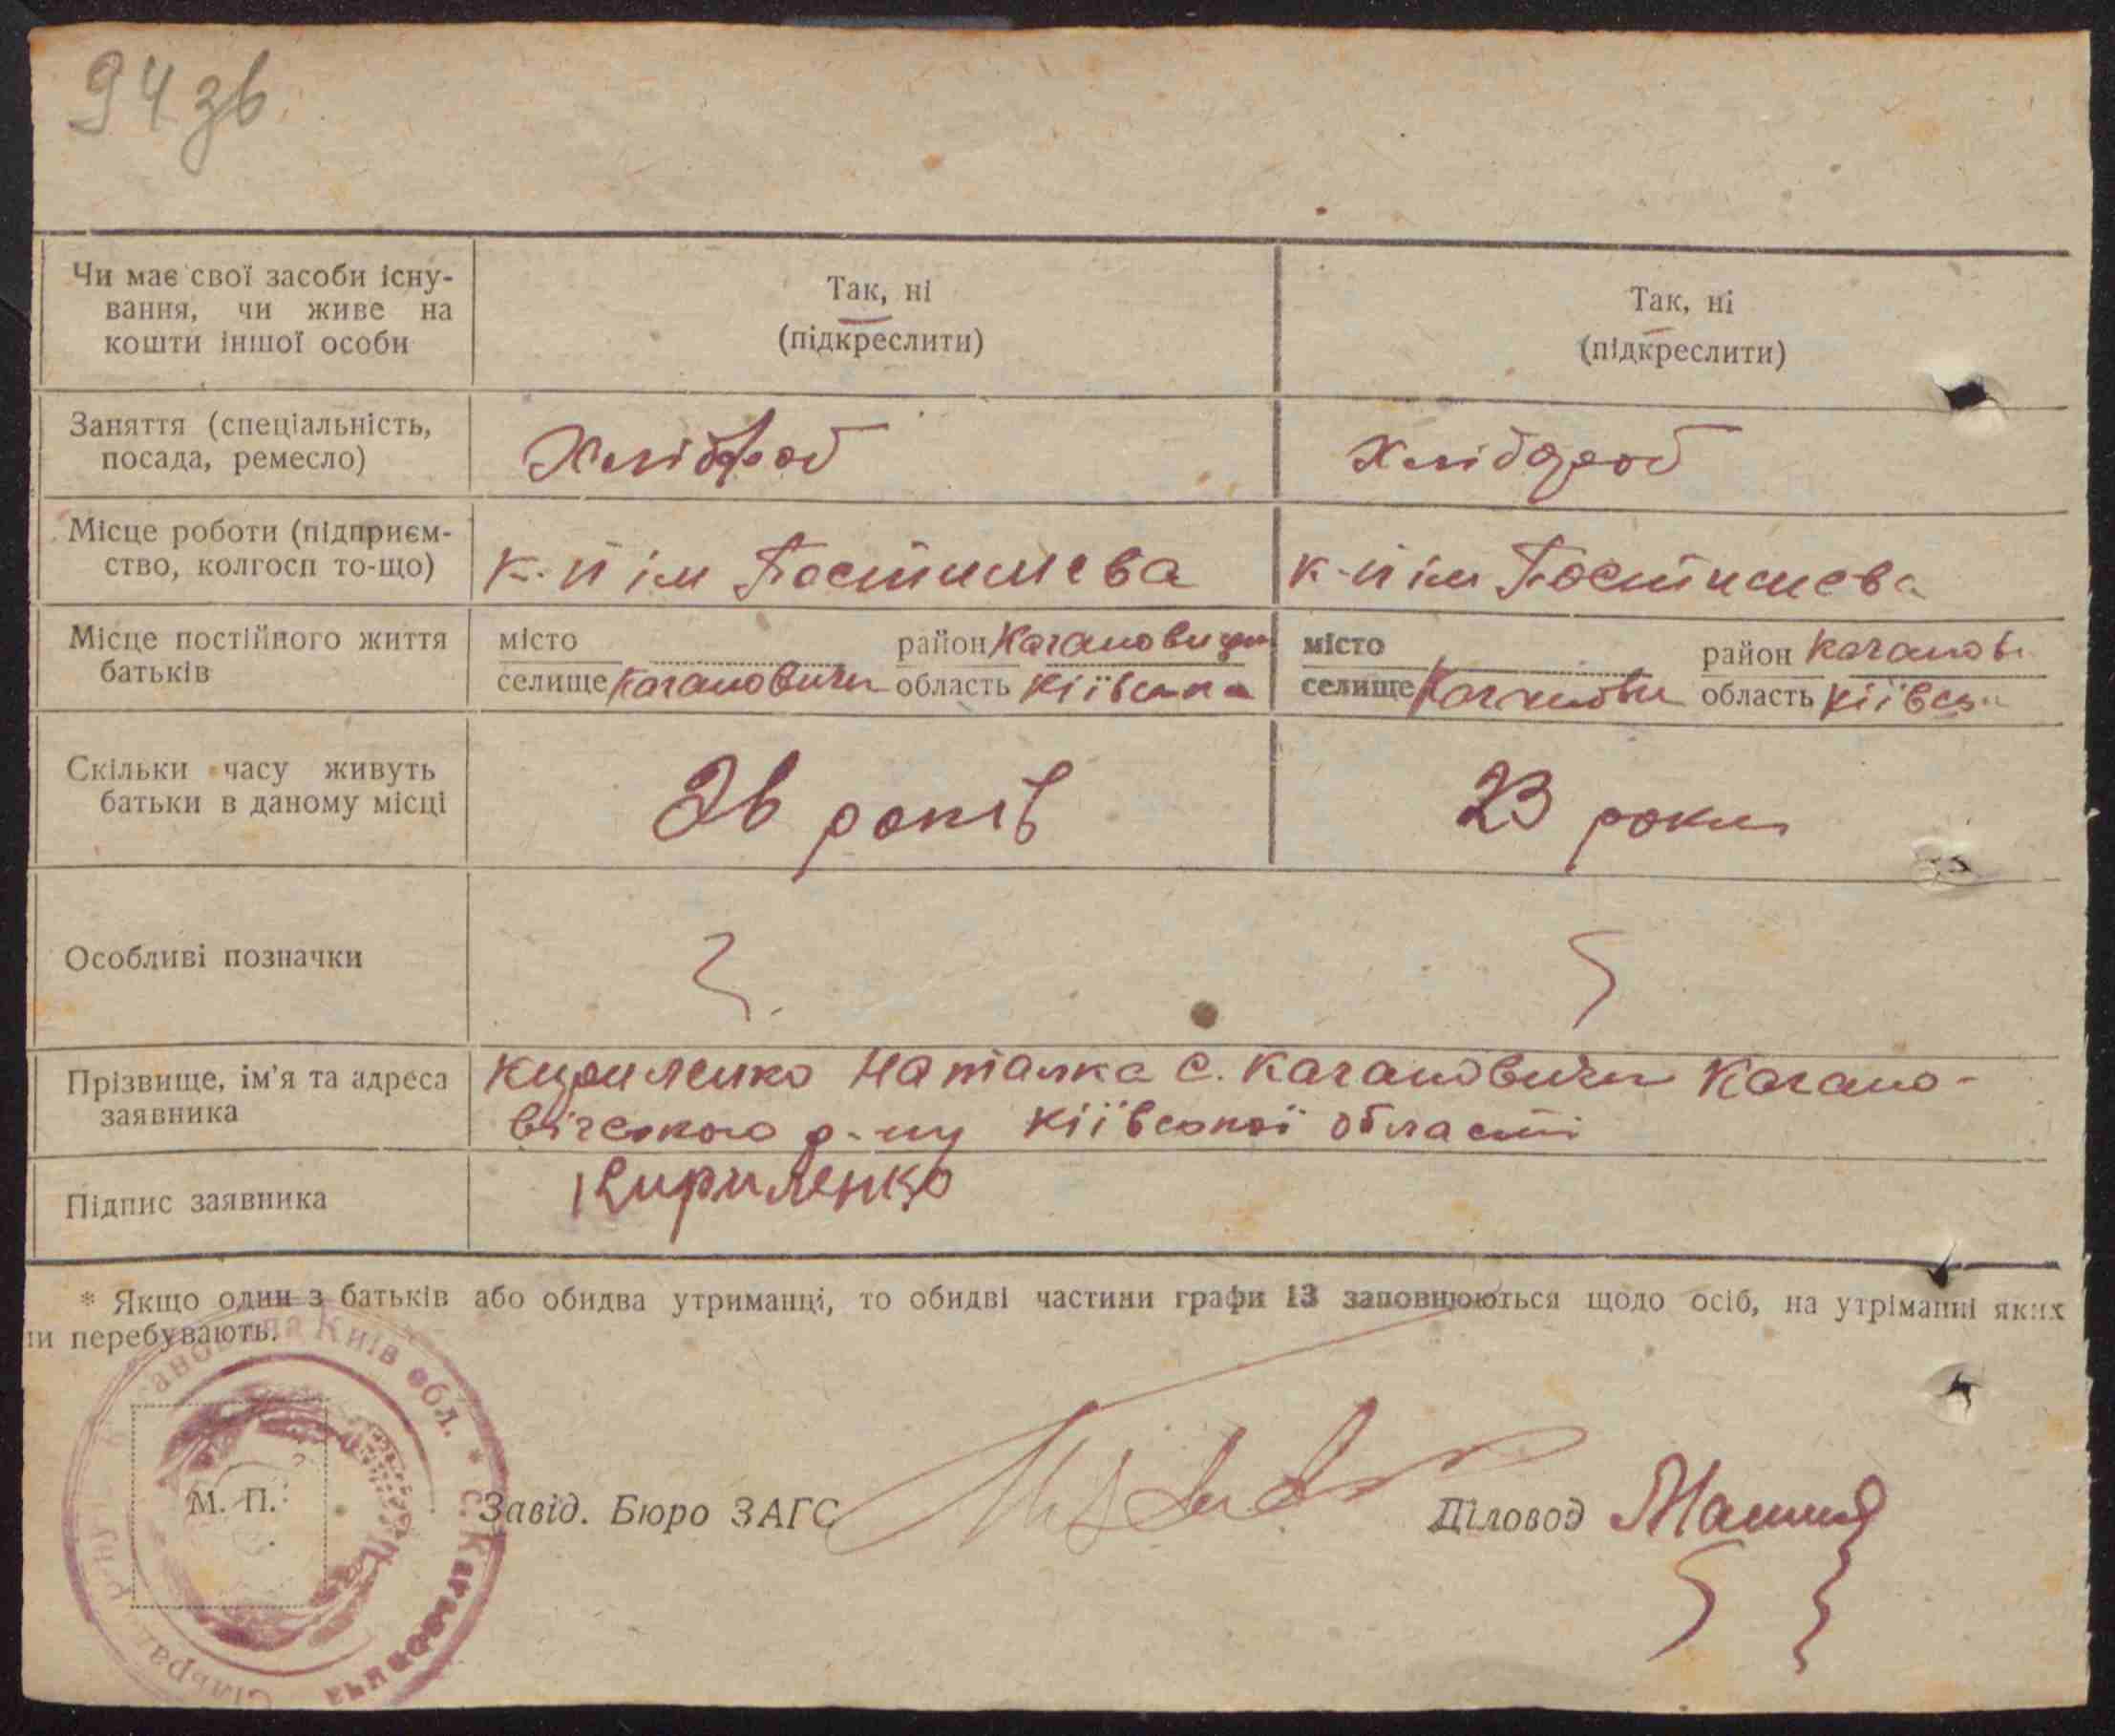 94 зв.
Чи має свої засоби існу-
вання, чи живе на
кошти іншої особи
Так, ні
(підкреслити)
Так, ні
(підкреслити)
Заняття (спеціальність,
посада, ремесло)
Хлібороб
Хлібороб
Місце роботи (підприєм-
ство, колгосп то-що)
к-п ім Постишева
к-п ім Постишева
Місце постійного життя
батьків
місто район
селище Кагановичи область Київська
місто район Каганові
селище Каганови область Київсь
Скільки часу живуть
батьки в даному місці
26 років
23 роки
Особливі позначки
Прізвище, ім'я та адреса
заявника
Кириленко Наталка с. Кагановичи Кагано-
вічского р-ну Київської області
Підпис заявника
Кириленко
* Якщо один з батьків або обидва утриманці, то обидві частини графи 13 заповнюються щодо осіб, на утріманні яких
ни перебувають.
Київ обл. * с. Кагановича
М. П.
Завід. Бюро ЗАГС
Діловод